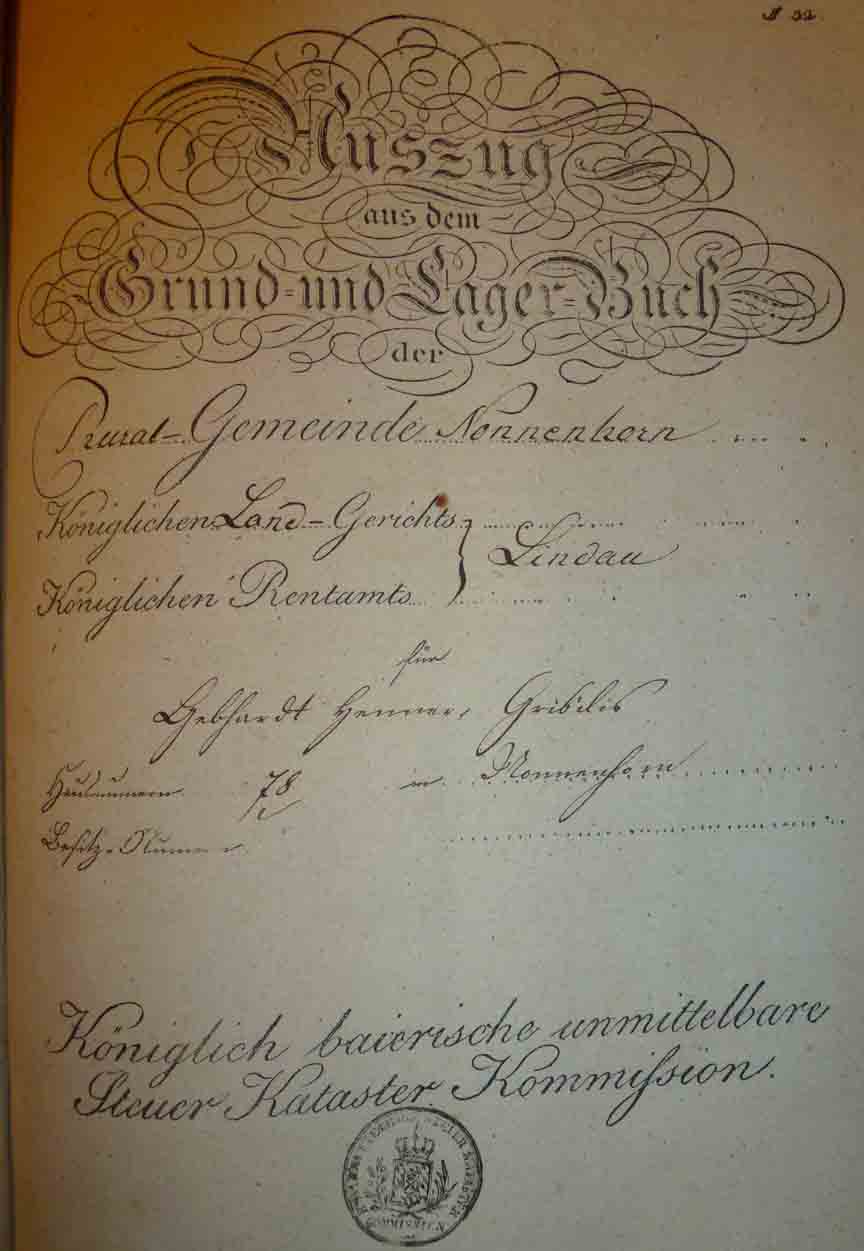 № 32.
Auszug
aus dem
Grund- und Lager-Buch
der
Rural-Gemeinde Nonnenhorn
Königlichen Land-Gerichts
Lindau
Königlichen Rentamts
für
Gebhardt Henner,
Hausnumern 78 in Nonnenhorn
Besitz-Numer
Königlich baierische unmittelbare
Steuer Kataster Kommission.
STEUER KATASTER
COMMISSION